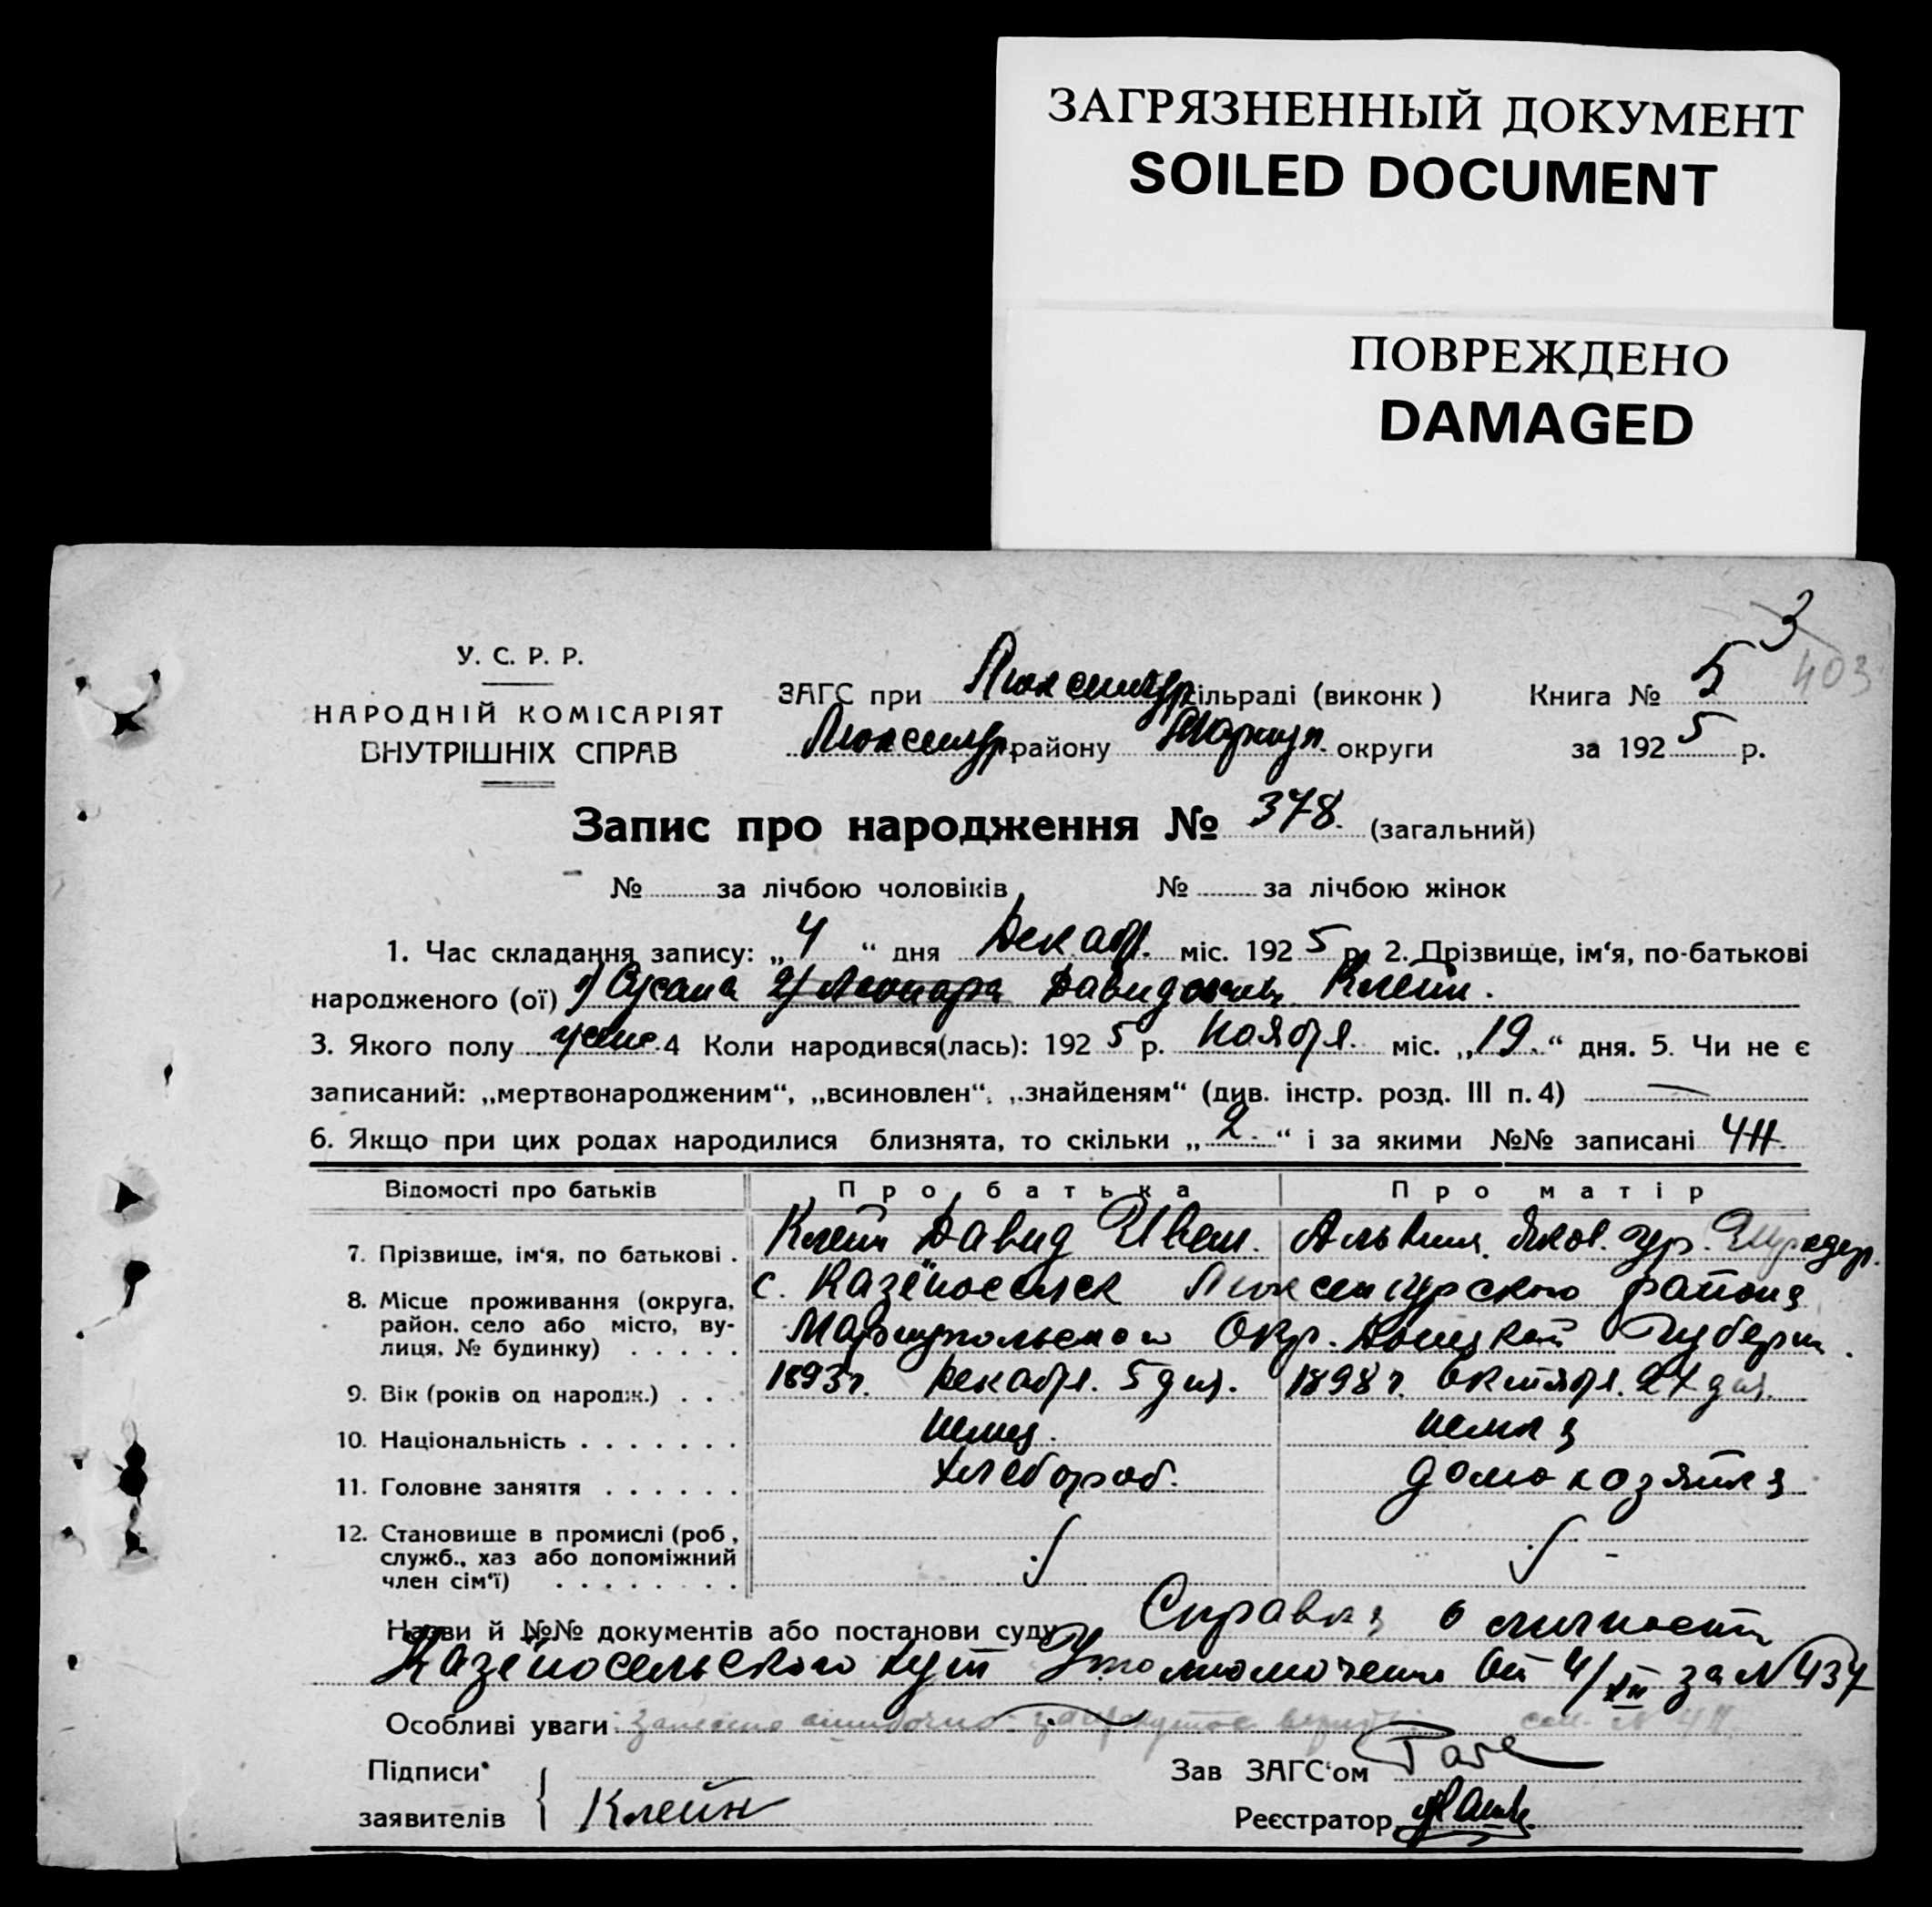 ЗАГРЯЗНЕННЫЙ ДОКУМЕНТ
SOILED DOCUMENT
ПОВРЕЖДЕНО
DAMAGED
3
403
У. С. Р. Р.
НАРОДНІЙ КОМІСАРІЯТ
ВНУТРІШНІХ СПРАВ
ЗАГС при Люксембур сільраді (виконк) Книга № 5
Люксембур. району Мариуп. округи за 1925 р.
Запис про народження № 378. (загальний)
№ за лічбою чоловіків, № за лічбою жінок
1. Час складання запису: „4“ дня Декабр. міс. 1925 р. 2. Прізвище, ім‘я, по-батькові
народженого (ої) 1) Сусана 2) Леонора Давидовна Клейн.
3. Якого полу женс. 4 Коли народився(лась): 1925 р. Ноября. міс. „19.“ дня. 5. Чи не є
записаний: „мертвонародженим“, „всиновлен“, „знайденям“ (див. інстр. розд. III п. 4) —
6. Якщо при цих родах народилися близнята, то скільки „2.“ і за якими №№ записані
Відомості про батьків Про батька Про матір
7. Прізвище, ім‘я, по батькові . Клейн Давид Иван. Альвина Яков. ур. Шредер.
8. Місце проживання (округа, район. село або місто, вулиця, № будинку) . . . . . с. Казёносельск Люксембургского района
Мариупольского Окр. Донецкой Губерн.
9. Вік (років од народж.) . . . 1893 г. Декабря. 5 дня. 1898 г. Октября. 27 дня.
10. Національність . . . . . . . немец. немка
11. Головне заняття . . . . . . хлебороб. домохозяйка
12. Становище в промислі (роб., служб., хаз або допоміжний член сім‘ї) . . . . . . . .
Назви й №№ документів або постанови суду Справка о личности
Казёносельского Уполномочен От 4/XII за № 437
Особливі уваги: Записано ошибочно
Підписи заявителів { Клейн
Зав ЗАГС‘ом
Реєстратор